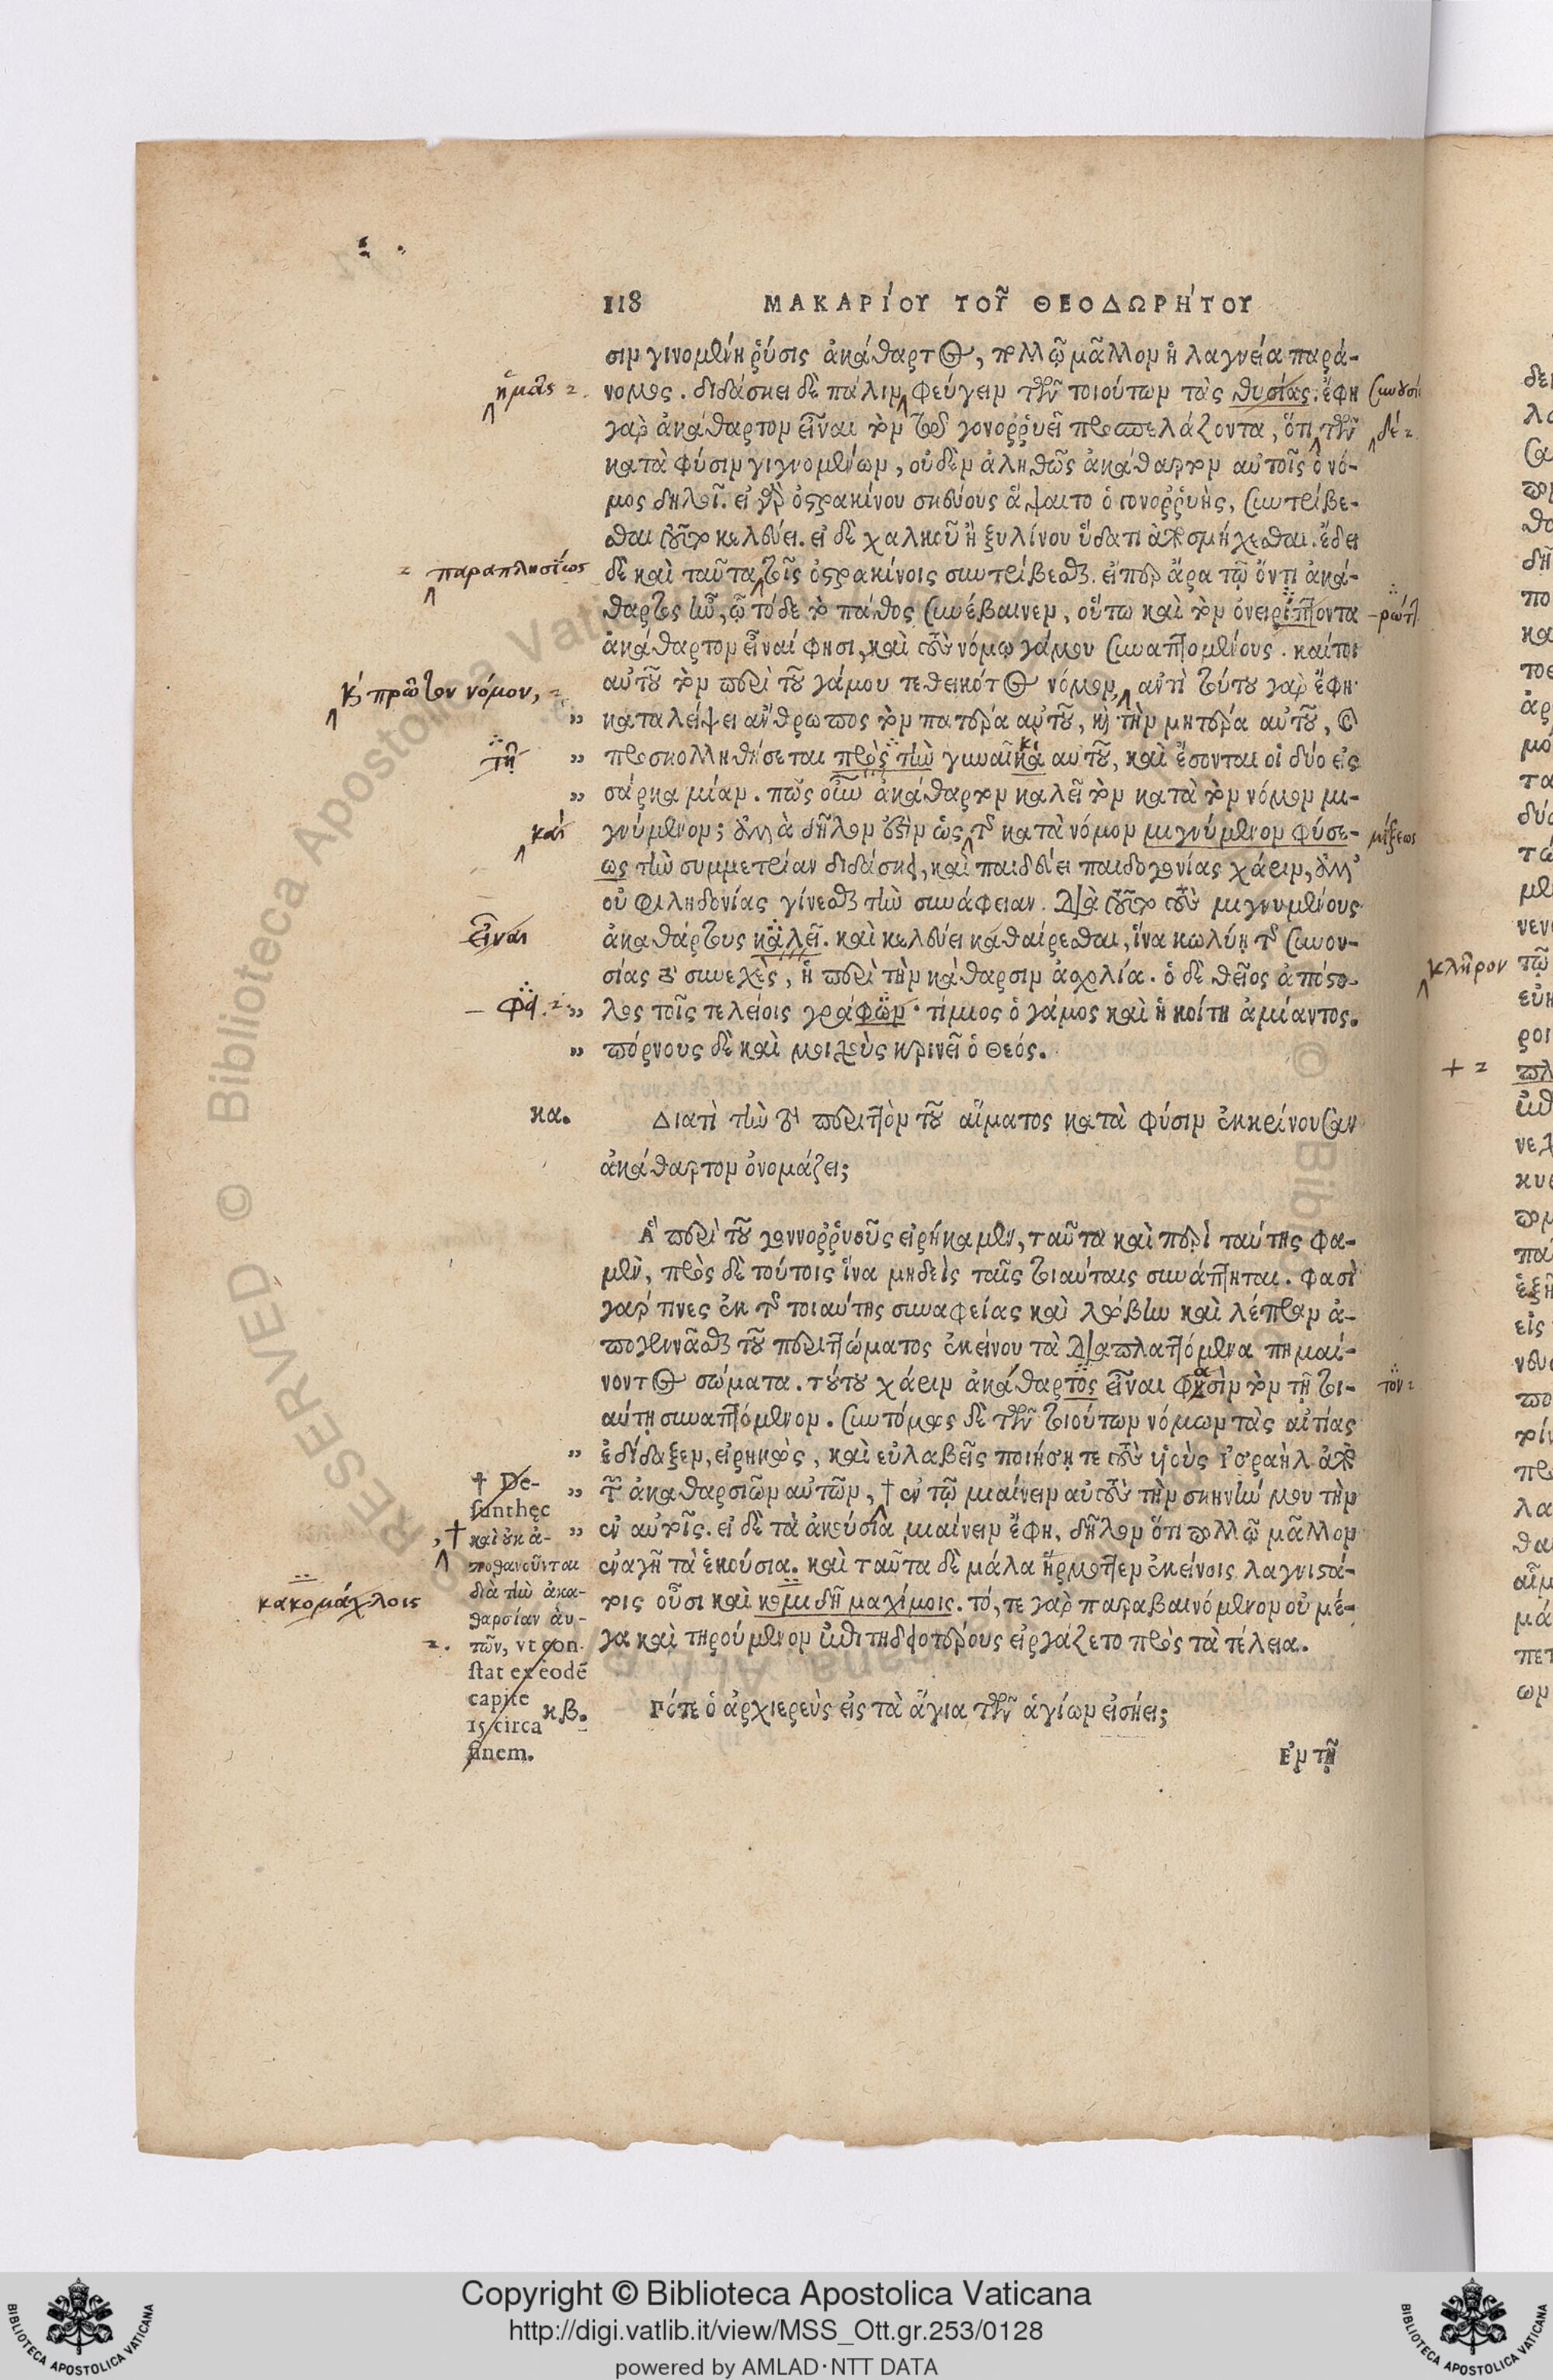 118 ΜΑΚΑΡΊΟΥ ΤΟΥ͂ ΘΕΟΔΩΡΉΤΟΥ
σιν γινομένη ῥύσις ἀκάθαρτος, πολλῷ μᾶλλον ἡ λαγνεία παρά-
ἡμᾶς
νομος. διδάσκει δὲ πάλιν φεύγειν τῶν τοιούτων τὰς θυσίας. ἔφη
γὰρ ἀκάθαρτον εἶναι τὸν τῷ γονοῤῥυεῖ προσπελάζοντα, ὅτι τῶν
δέ
κατὰ φύσιν γιγνομένων, οὐδὲν ἀληθῶς ἀκάθαρτον αὐτοῖς ὁ νό-
μος δηλοῖ. εἰ γὰρ ὀστρακίνου σκεύους ἅψαιτο ὁ γονοῤῥυὴς, συντρίβε-
σθαι τοῦτο κελεύει. εἰ δὲ χαλκοῦ ἢ ξυλίνου ὕδατι ἀποσμήχεσθαι. ἔδει
παραπλησίως
δὲ καὶ ταῦτα τοῖς ὀστρακίνοις συντρίβεσθαι. εἴπερ ἄρα τῷ ὄντι ἀκά-
θαρτος ἦν, ᾧ τόδε τὸ πάθος συνέβαινεν, οὕτω καὶ τὸν ὀνειρίττοντα
-ρώτ
ἀκάθαρτον εἶναί φησι, καὶ τοὺς νόμῳ γάμου συναπτομένους. καίτοι
αὐτοῦ τὸν περὶ τοῦ γάμου τεθεικότος νόμον, αὐτὶ τούτου γὰρ ἔφη·
καὶ πρῶτον νόμον,
„ καταλείψει ἄνθρωπος τὸν πατέρα αὐτοῦ, καὶ τὴν μητέρα αὐτοῦ, καὶ
τῇ
„ προσκολληθήσεται πρὸς τὴν γυναῖκα αυτοῦ, καὶ ἔσονται οἱ δύο εἰς
„ σάρκα μίαν. πῶς οὖν ἀκάθαρτον καλεῖ τὸν κατὰ τὸν νόμον μι-
καὶ
γνύμενον; ἀλλὰ δῆλον ἐστὶν ὡς τῆς κατὰ νόμον μιγνύμενον φύσε-
μίξεως
ως τὴν συμμετρίαν διδάσκει, καὶ παιδεύει παιδογονίας χάριν, ἀλλ'
οὐ φιληδονίας γίνεσθαι τὴν συνάφειαν. διὰ τοῦτο τοὺς μιγνυμένους
εἶναι
ἀκαθάρτους καλεῖ. καὶ κελεύει καθαίρεσθαι, ἵνα κωλύῃ τῆς συνου-
σίας τὸ συνεχὲς, ἡ περὶ τὴν κάθαρσιν ἀσχολία. ὁ δὲ θεῖος ἀπόστο-
„ λος τοῖς τελείοις γράφων· τίμιος ὁ γάμος καὶ ἡ κοίτη ἀμίαντος.
„ πόρνους δὲ καὶ μοιχοὺς κρινεῖ ὁ Θεός.
κα. Διατὶ τὴν τὸ περιττὸν τοῦ αἵματος κατὰ φύσιν ἐκκρίνουσαν
ἀκάθαρτον ὀνομάζει;
Ἃ περὶ τοῦ γονοῤῥυοῦς εἰρήκαμεν, ταῦτα καὶ περὶ ταύτης φα-
μὲν, πρὸς δὲ τούτοις ἵνα μηδεὶς ταῖς τοιαύταις συνάπτηται. φασὶ
γάρ τινες ἐκ τῆς τοιαύτης συναφείας καὶ λώβην καὶ λέπραν ἀ-
πογεννᾶσθαι τοῦ περιττώματος ἐκείνου τὰ διαπλαττόμενα πημαί-
νοντος σώματα. τούτου χάριν ἀκάθαρτος εἶναι φησὶν τὸν τῇ τοι-
τον
αύτῃ συναπτόμενον. συντόμως δὲ τῶν τοιούτων νόμων τὰς αἰτίας
„ ἐδίδαξεν, εἰρηκὼς, καὶ εὐλαβεῖς ποιήσητε τοὺς υἱοὺς Ἰσραὴλ ἀπὸ
„ τῶν ἀκαθαρσιῶν αὐτῶν, † ἐν τῷ μιαίνειν αὐτοὺς τὴν σκηνήν μου τὴν
„ ἐν αὐτοῖς. εἰ δὲ τὰ ἀκούσια μιαίνειν ἔφη, δῆλον ὅτι πολλῷ μᾶλλον
ἐναγῆ τὰ ἑκούσια. καὶ ταῦτα δὲ μάλα ἥρμοττεν ἐκείνοις λαγνιστά-
τοις οὖσι καὶ κομιδῆ μαχίμοις. τό, τε γὰρ παραβαινόμενον οὐ μέ-
γα καὶ τηρούμενον ἐπιτηδειοτέρους εἰργάζετο πρὸς τὰ τέλεια.
† De-
sunt hęc
καὶ οὐκ ἀ-
ποθανοῦνται
διὰ τὴν ἀκα-
θαρσίαν αὐ-
τῶν, vt con-
stat ex eodē
capite
15 circa
finem.
κακομάχλοις
κβ. Πότε ὁ ἀρχιερεὺς εἰς τὰ ἅγια τῶν ἁγίων εἰσῄει;
Ἐν τῇ
κλῆρον
Copyright © Biblioteca Apostolica Vaticana
http://digi.vatlib.it/view/MSS_Ott.gr.253/0128
powered by AMLAD·NTT DATA
BIBLIOTECA APOSTOLICA VATICANA
BIBLIOTECA APOSTOLICA VATICANA